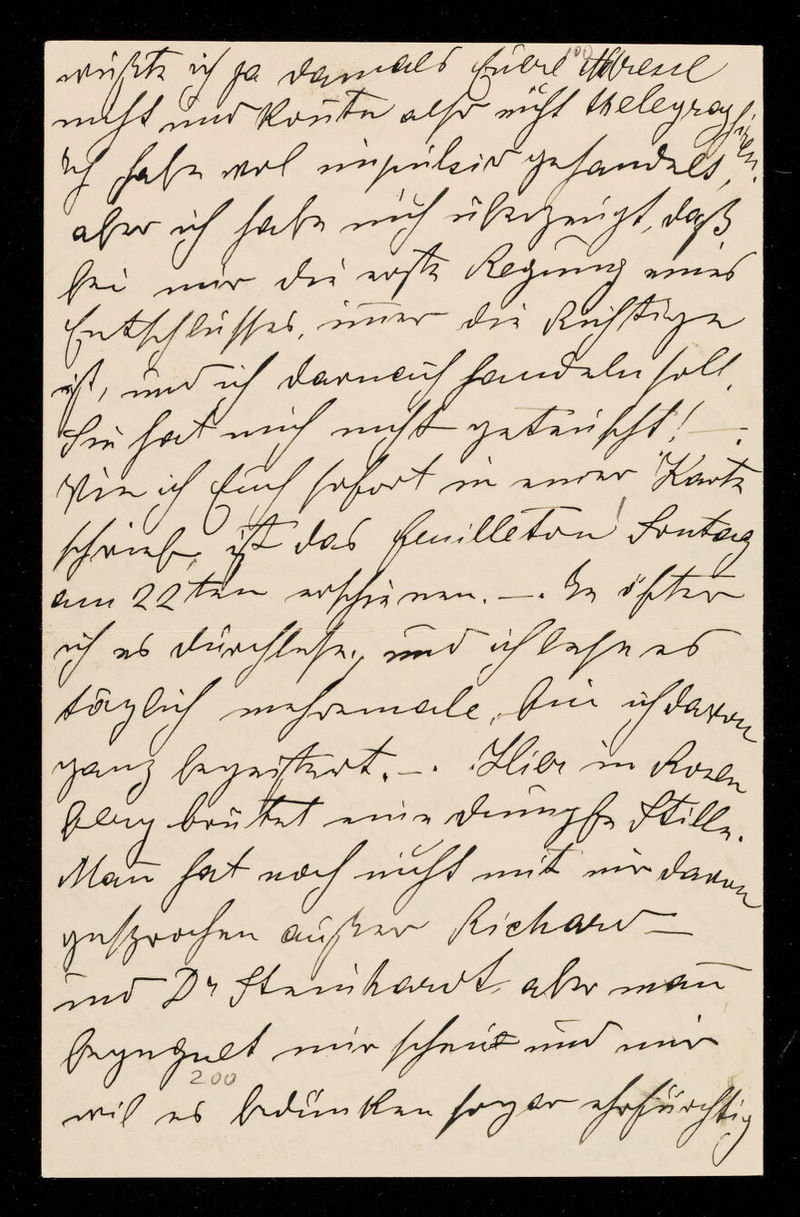 wußte ich ja damals Euere Adresse 100
nicht und konte also nicht thelegraphiren.
Ich habe wol impulsiv gehandelt,
aber ich habe mich überzeugt, daß
bei mir die erste Regung eines
Entschlusses, im̅er die Richtige
ist, und ich darnach handeln soll.
Sie hat mich nicht geteuscht! —.
Wie ich Euch sofort in einer Karte
schrieb, ist das Feuilleton Sontag
am 22ten erschienen. —. Je öfter
ich es durchlese, und ich lese es
täglich mehremale, bin ich davon
ganz begeistert. —. Hier in Rosen
berg brütet eine dumpfe Stille.
Man̅ hat noch nicht mit mir davon
gesprochen außer Richard —
und Dr Steinhardt, aber man̅
begegnet mir scheu und mir
200
wil es bedünken sogar ehrfürchtig